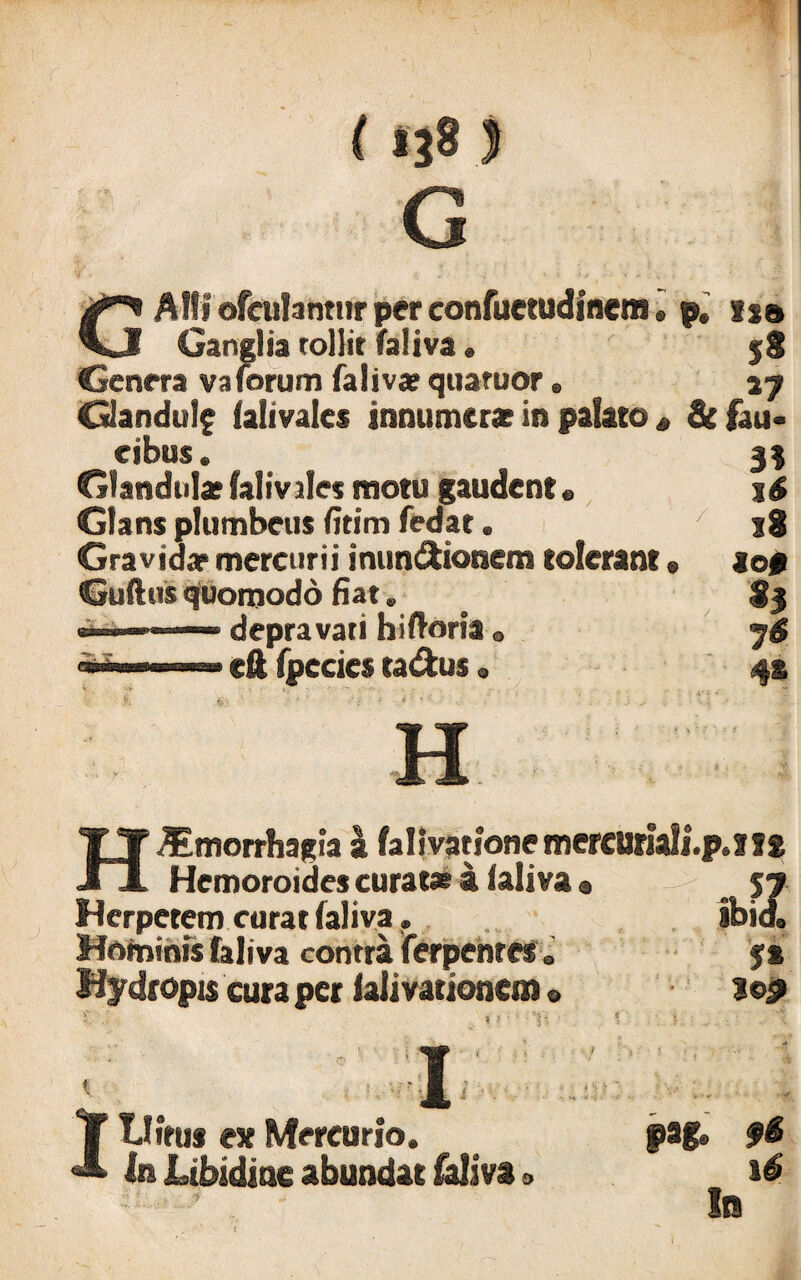 ( 138 )
G
GAlli osculantur per consuetudinem. p. 110
Ganglia tollit saliva. 58
Genera vasorum salivæ quatuor. 27
Glandulę salivales innumeræ in palato, & fau-
cibus. 33
Glandulæ salivales motu gaudent. 16
Glans plumbeus sitim sedat. 18
Gravidæ mercurii inunctionem tolerant.
Gustus quomodò fiat. 83
——— depravati historia. 76
——— est species tactus. 42
H
HÆmorrhagia à salivatione mercuriali.p.112
Hemoroides curatæ à saliva. 57
Herpetem curat saliva. ibid.
Hominis saliva contrà serpentes. 52
Hydropis cura per salivationem. 109
I
Ictus ex Mercurio. pag. 96
In Libidine abundat saliva. 16
In